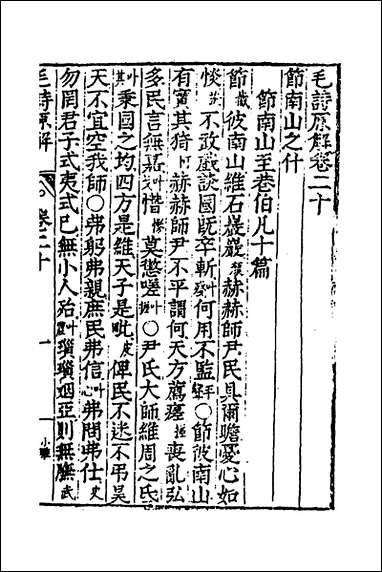 毛詩原解卷二十
節南山之什
節南山至巷伯凡十篇
節截彼南山維石巖巖赫赫師尹民具爾瞻憂心如
惔不敢戲談國既卒斬何用不監平○節彼南山
有實其猗赫赫師尹不平謂何天方薦瘥喪亂弘
多民言無嘉憯莫懲嗟○尹氏大師維周之氐
秉國之均四方是維天子是毗俾民不迷不弔昊
天不宜空我師○弗躬弗親庶民弗信弗問弗仕史
勿罔君子式夷式已無小人殆瑣瑣姻亞則無膴武
毛詩原解
卷二十
一
小雅